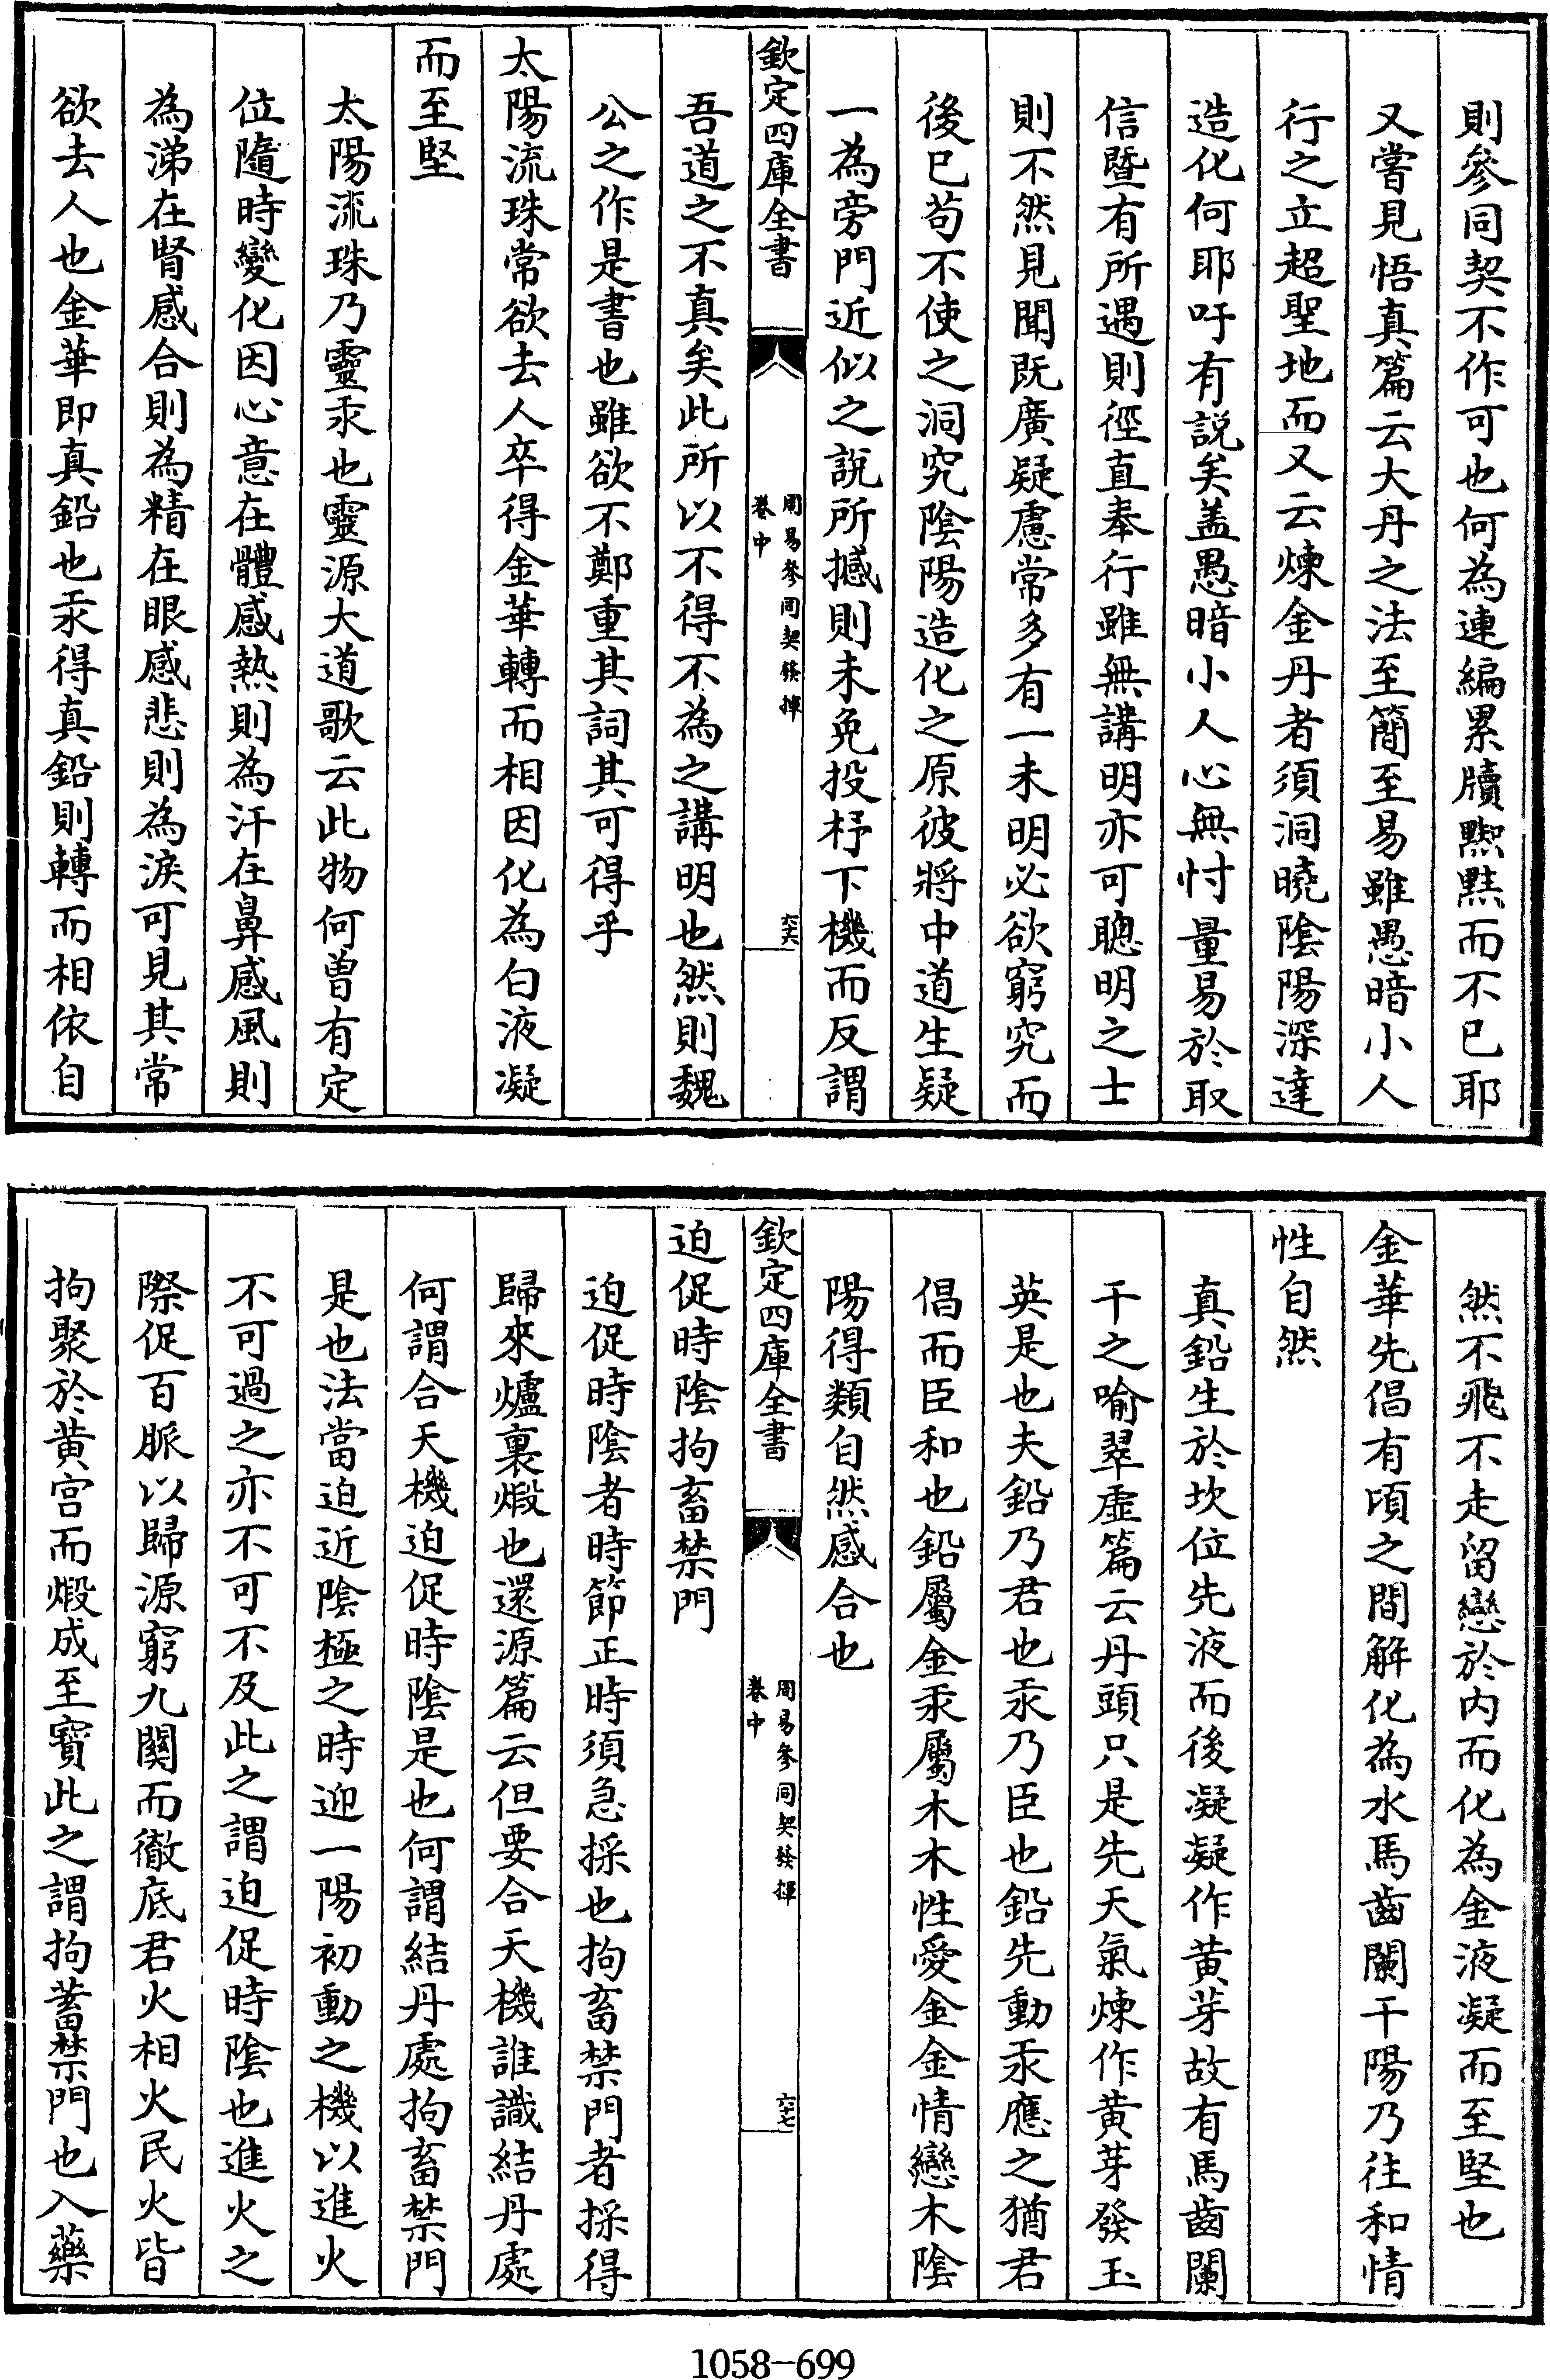 則參同契不作可也何為連編累牘黙黙而不已耶
又嘗見悟真篇云大丹之法至簡至易雖愚暗小人
行之立超聖地而又云煉金丹者須洞曉隂陽深達
造化何耶吁有説矣盖愚暗小人心無忖量易於取
信暨有所遇則徑直奉行雖無講明亦可聰明之士
則不然見聞既廣疑慮常多有一未明必欲窮究而
後已苟不使之洞究隂陽造化之原彼將中道生疑
一為旁門近似之說所撼則未免投杼下機而反謂
欽定四庫全書
周易參同契發揮
卷中
六六
吾道之不真矣此所以不得不為之講明也然則魏
公之作是書也雖欲不鄭重其詞其可得乎
太陽流珠常欲去人卒得金華轉而相因化為白液凝
而至堅
太陽流珠乃靈汞也靈源大道歌云此物何曽有定
位隨時變化因心意在體感熱則為汗在鼻感風則
為涕在腎感合則為精在眼感悲則為淚可見其常
欲去人也金華即真鉛也汞得真鉛則轉而相依自
然不飛不走留戀於内而化為金液凝而至堅也
金華先倡有頃之間解化為水馬齒闌干陽乃往和情
性自然
真鉛生於坎位先液而後凝凝作黄芽故有馬齒闌
干之喻翠虚篇云丹頭只是先天氣煉作黄芽發玉
英是也夫鉛乃君也汞乃臣也鉛先動汞應之猶君
倡而臣和也鉛屬金汞屬木木性愛金金情戀木隂
陽得類自然感合也
欽定四庫全書
周易參同契發揮
卷中
六七
迫促時隂拘畜禁門
迫促時隂者時節正時須急採也拘畜禁門者採得
歸來爐裏煅也還源篇云但要合天機誰識結丹處
何謂合天機迫促時隂是也何謂結丹處拘畜禁門
是也法當迫近隂極之時迎一陽初動之機以進火
不可過之亦不可不及此之謂迫促時隂也進火之
際促百脈以歸源窮九關而徹底君火相火民火皆
拘聚於黄宫而煅成至寳此之謂拘蓄禁門也入藥
1058-699